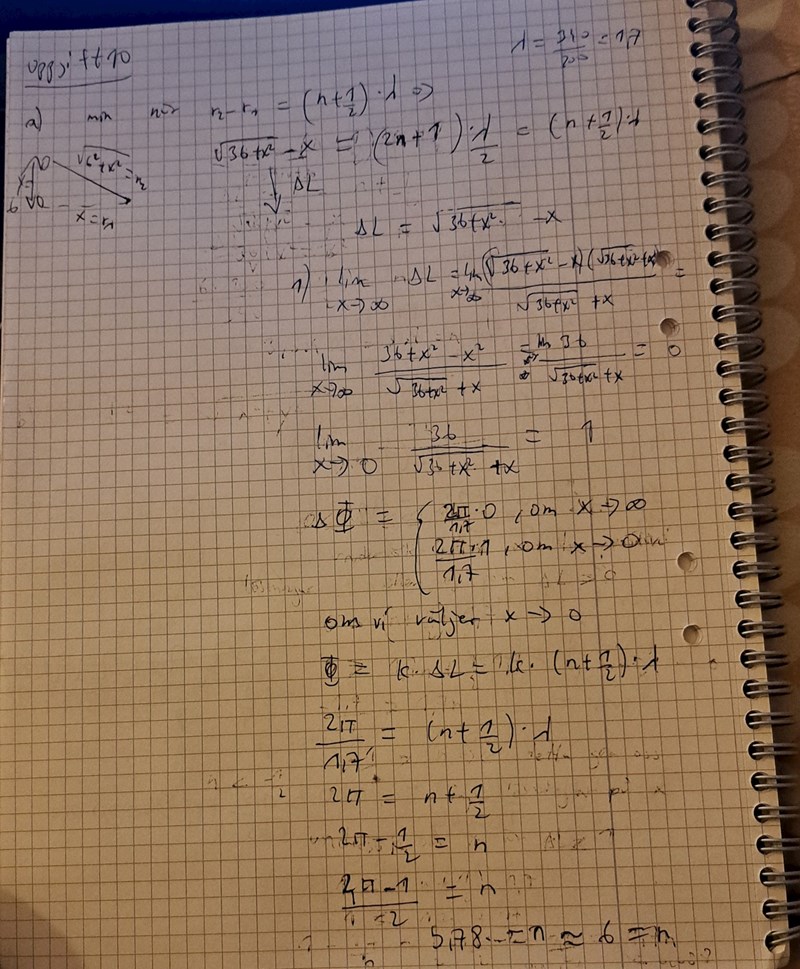 λ = 340/200 = 1,7
a) min när r₂-r₁ = (n+1/2)·λ <=>
√(36+x²) - x = (2n+1)·λ/2 = (n+1/2)·λ
↓ ΔL
√(6²+x²) = r₂
x = r₁
ΔL = √(36+x²) - x
1) lim x→∞ ΔL = lim x→∞ (√(36+x²) - x)(√(36+x²) + x) / (√(36+x²) + x) =
lim x→∞ (36+x²-x²) / (√(36+x²) + x) = lim x→∞ 36 / (√(36+x²) + x) = 0
lim x→0 36 / (√(36+x²) + x) = 1
ΔΦ = { 2π/1,7 · 0, om x→∞
2π·1/1,7, om x→0
om vi väljer x→0
Φ = k·ΔL = k·(n+1/2)·λ
2π/1,7 = (n+1/2)·λ
2π = n + 1/2
2π - 1/2 = n
(4π-1)/2 = n
5,78.. = n ≈ 6 = n